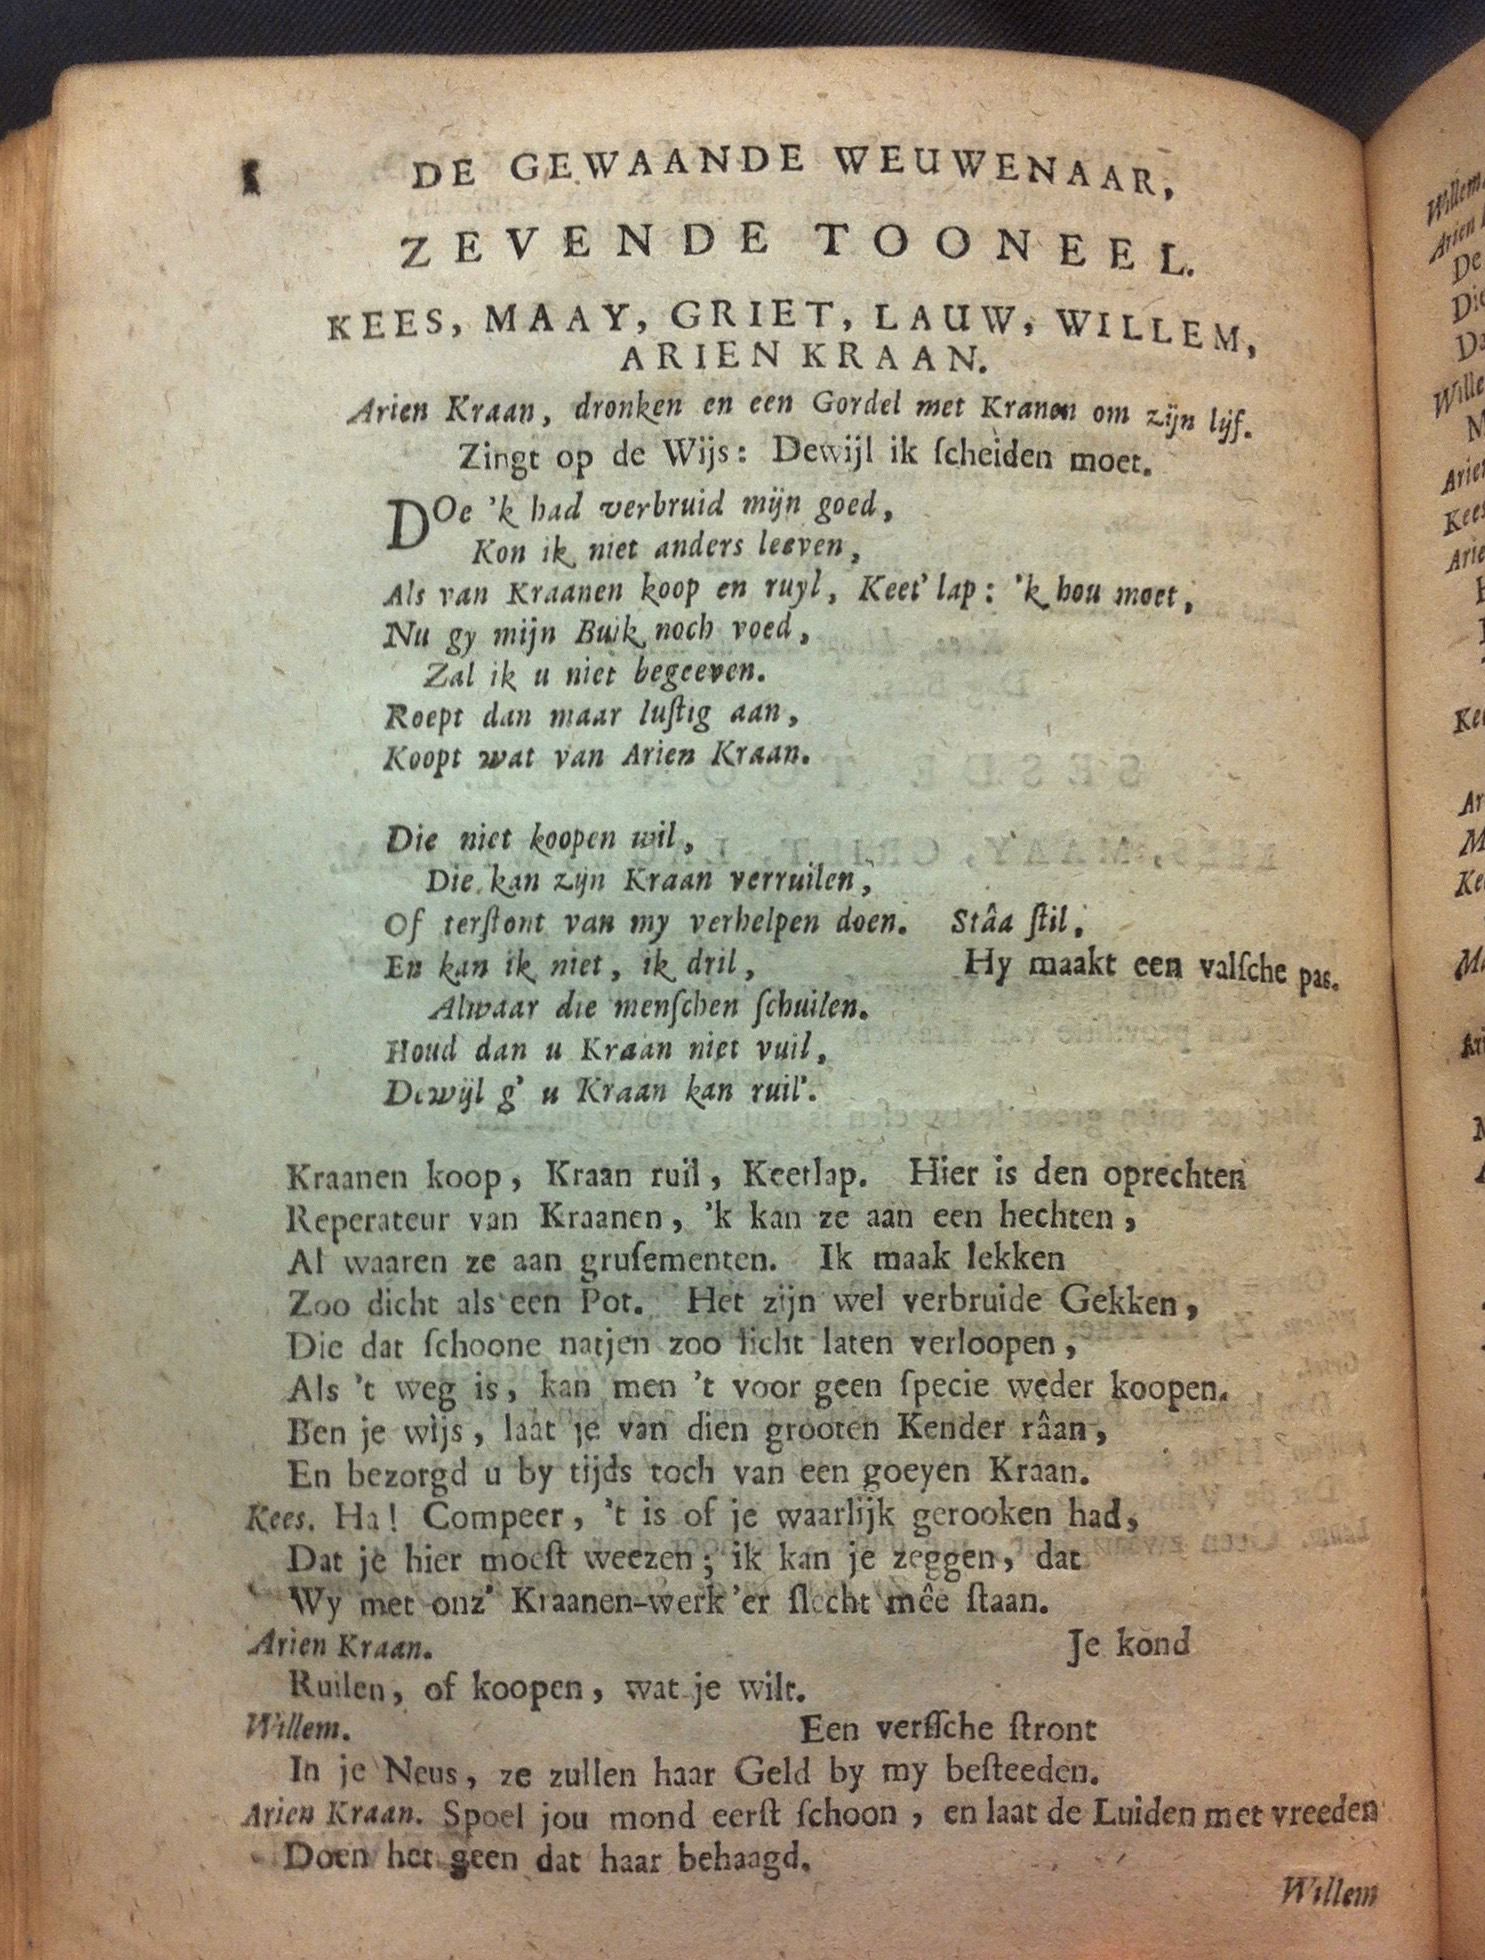 8 DE GEWAANDE WEUWENAAR,
ZEVENDE TOONEEL.
KEES, MAAY, GRIET, LAUW, WILLEM,
ARIEN KRAAN.
Arien Kraan, dronken en een Gordel met Kranen om zijn lijf.
Zingt op de Wijs: Dewijl ik ſcheiden moet.
DOe 'k had verbruid mijn goed,
Kon ik niet anders leeven,
Als van Kraanen koop en ruyl, Keet'lap: 'k hou moet,
Nu gy mijn Buik noch voed,
Zal ik u niet begeeven.
Roept dan maar luſtig aan,
Koopt wat van Arien Kraan.
Die niet koopen wil,
Die kan zijn Kraan verruilen,
Of terſtont van my verhelpen doen. Stâa ſtil.
En kan ik niet, ik dril, Hy maakt een valſche pas.
Alwaar die menſchen ſchuilen.
Houd dan u Kraan niet vuil,
Dewijl g' u Kraan kan ruil'.
Kraanen koop, Kraan ruil, Keetlap. Hier is den oprechten
Reperateur van Kraanen, 'k kan ze aan een hechten,
Al waaren ze aan gruſementen. Ik maak lekken
Zoo dicht als een Pot. Het zijn wel verbruide Gekken,
Die dat ſchoone natjen zoo licht laten verloopen,
Als 't weg is, kan men 't voor geen ſpecie weder koopen.
Ben je wijs, laat je van dien grooten Kender râan,
En bezorgd u by tijds toch van een goeyen Kraan.
Kees. Ha! Compeer, 't is of je waarlijk gerooken had,
Dat je hier moeſt weezen; ik kan je zeggen, dat
Wy met onz' Kraanen-werk 'er ſlecht mêe ſtaan.
Arien Kraan. Je kond
Ruilen, of koopen, wat je wilt.
Willem. Een verſſche ſtront
In je Neus, ze zullen haar Geld by my beſteeden.
Arien Kraan. Spoel jou mond eerſt ſchoon, en laat de Luiden met vreeden
Doen het geen dat haar behaagd.
Willem